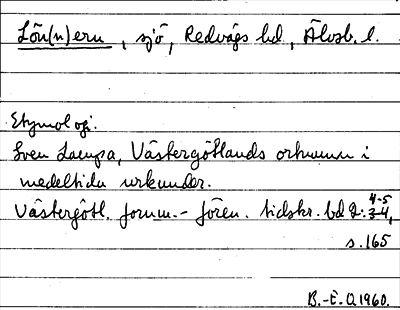 Lön(n)ern, sjö, Redvägs hd, Älvsb. l.
Etymologi.
Sven Lampa, Västergötlands ortnamn i
medeltida urkunder.
Västergötl. fornm.-fören. tidskr. bd 2: 4-5
3-4,
s. 165
B.-E. O. 1960.